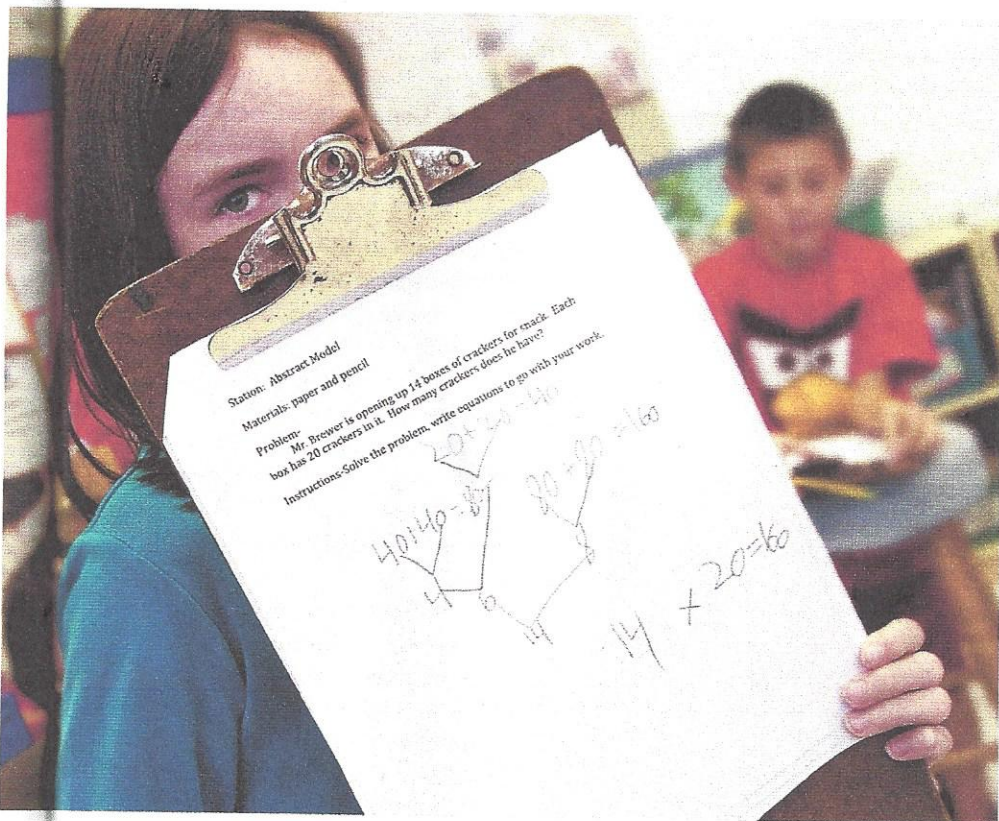 Station: Abstract Model
Materials: paper and pencil
Problem-
Mr. Brewer is opening up 14 boxes of crackers for snack. Each
box has 20 crackers in it. How many crackers does he have?
Instructions-Solve the problem, write equations to go with your work.
20+20=40
40+40=8
80+80=160
4
6
14
14 x 20=160